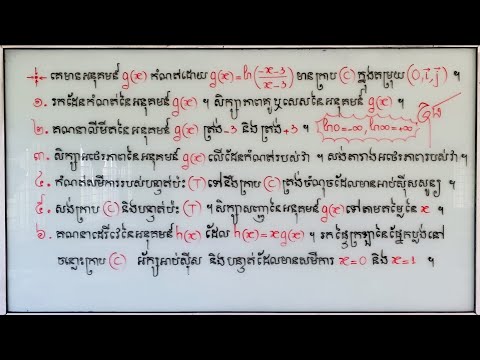 គេមានអនុគមន៍ g(x) កំណត់ដោយ g(x)=ln(-x-3/x-3) មានក្រាប (C) ក្នុងតម្រុយ (O,i,j) ។
១. រកដែនកំណត់នៃអនុគមន៍ g(x) ។ សិក្សាភាពគូ ឬសេសនៃអនុគមន៍ g(x) ។
២. គណនាលីមីតនៃអនុគមន៍ g(x) ត្រង់ -3 និងត្រង់ +3 ។ ln0=-∞, ln∞=+∞
៣. សិក្សាអថេរភាពនៃអនុគមន៍ g(x) លើដែនកំណត់របស់វា ។ សង់តារាងអថេរភាពរបស់វា ។
៤. កំណត់សមីការរបស់បន្ទាត់ប៉ះ (T) ទៅនឹងក្រាប (C) ត្រង់ចំណុចដែលមានអាប់ស៊ីសសូន្យ ។
៥. សង់ក្រាប (C) និងបន្ទាត់ប៉ះ (T) ។ សិក្សាសញ្ញានៃអនុគមន៍ g(x) ទៅតាមតម្លៃនៃ x ។
៦. គណនាដេរីវេនៃអនុគមន៍ h(x) ដែល h(x)=xg(x) ។ រកផ្ទៃក្រឡានៃផ្នែកប្លង់នៅ
ចន្លោះក្រាប (C) អ័ក្សអាប់ស៊ីស និងបន្ទាត់ដែលមានសមីការ x=0 និង x=1 ។